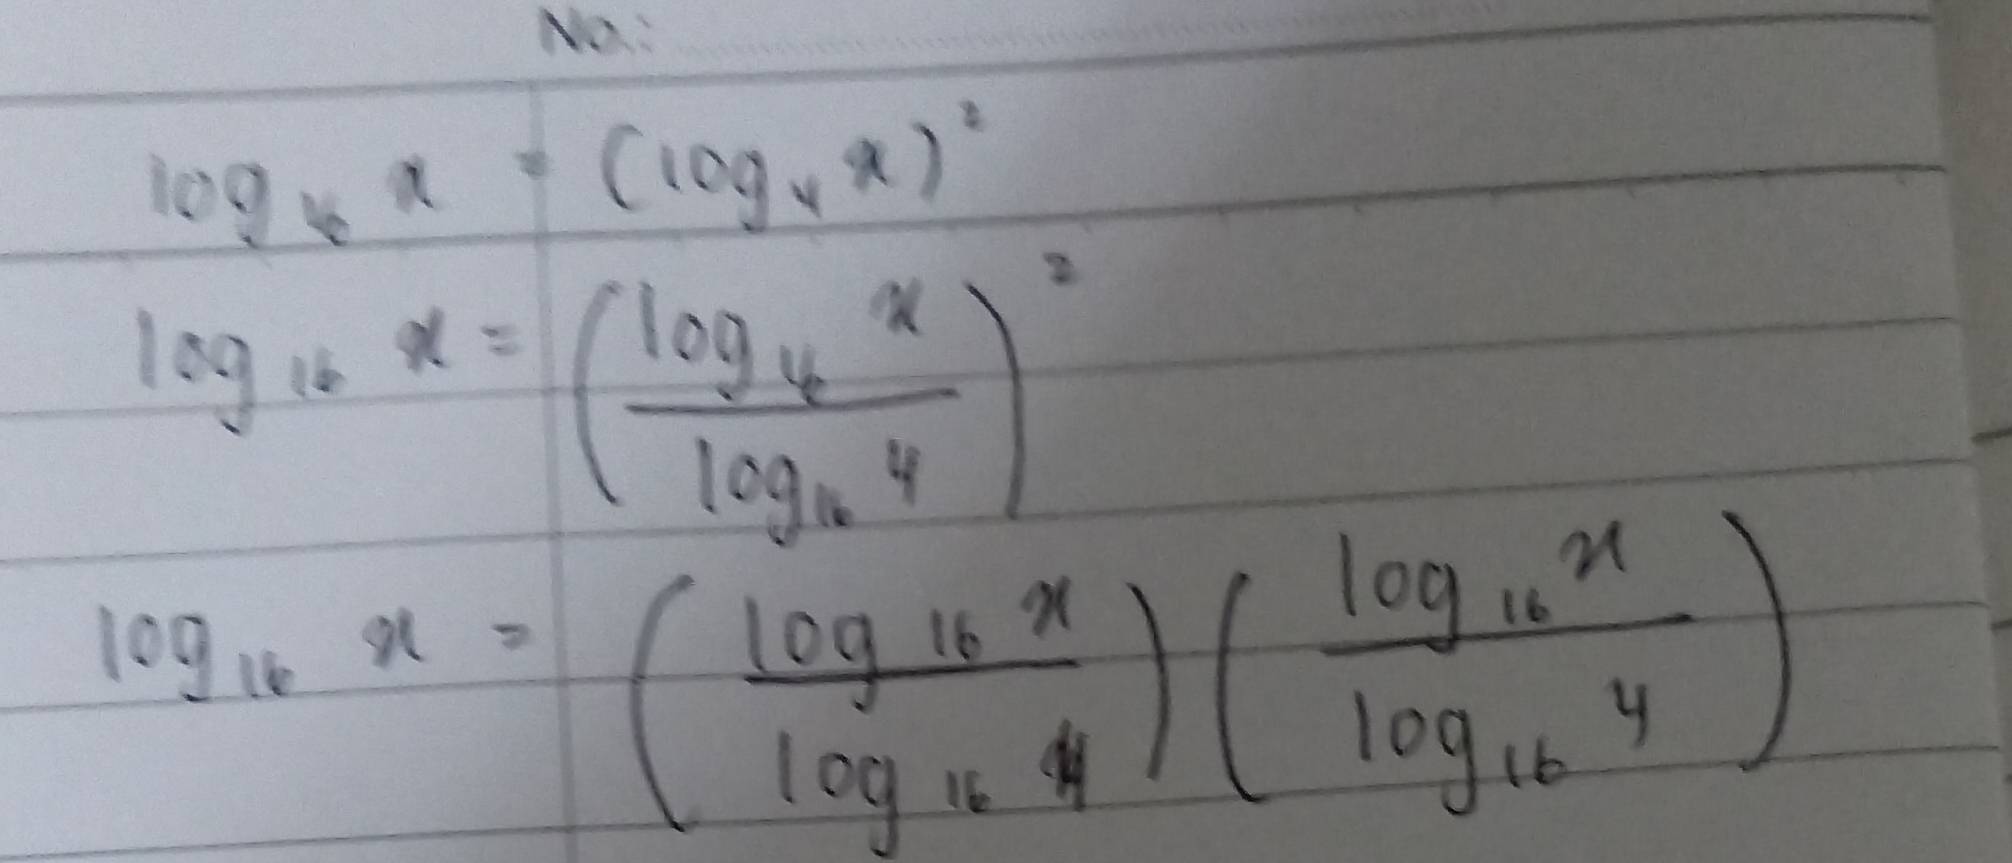 No:
log₁₆ x = (log₄ x)²
log₁₆ x = (log₁₆ x / log₁₆ 4)²
log₁₆ x = (log₁₆ x / log₁₆ 4) (log₁₆ x / log₁₆ 4)